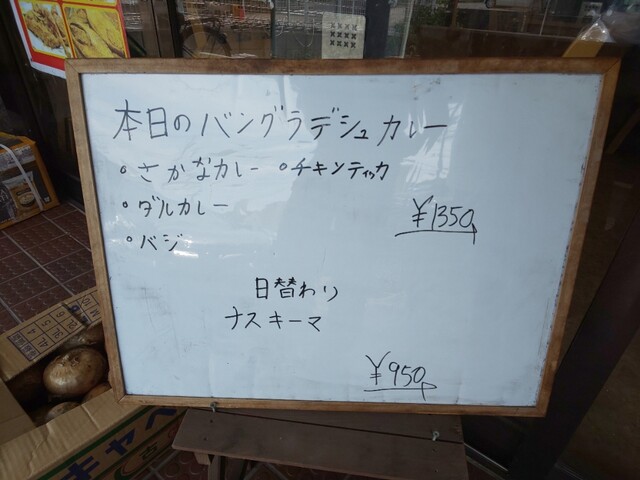 本日のバングラデシュカレー
•さかなカレー •チキンティッカ
•ダルカレー
•バジ
¥1350
日替わり
ナスキーマ
¥950
キャベ